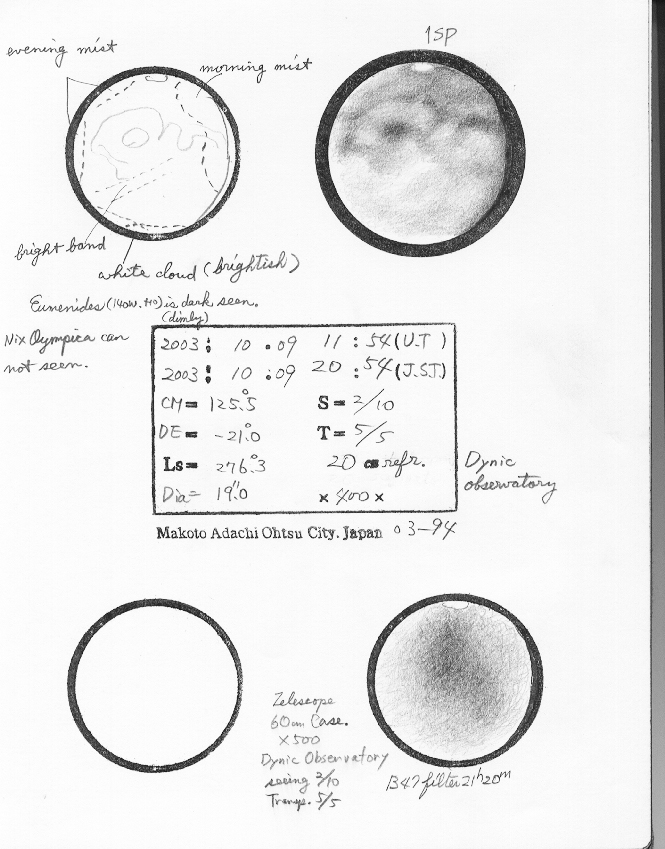 1SP
evening mist
morning mist
bright band
white cloud (brightish)
Eumenides (140W.+10) is dark seen.
(dimly)
Nix Olympica can
not seen.
2003 : 10 . 09 11 : 54 (U.T)
2003 : 10 : 09 20 : 54 (J.S.T.)
CM= 125.°5 S= 2/10
DE= -21.°0 T= 5/5
Ls= 276.°3 20 cm refr.
Dia= 19.″0 × 400 ×
Dynic
observatory
Makoto Adachi Ohtsu City. Japan 03-94
Telescope
60cm Case.
×500
Dynic Observatory
seeing 2/10
Transp. 5/5
B47 filter 21h20m